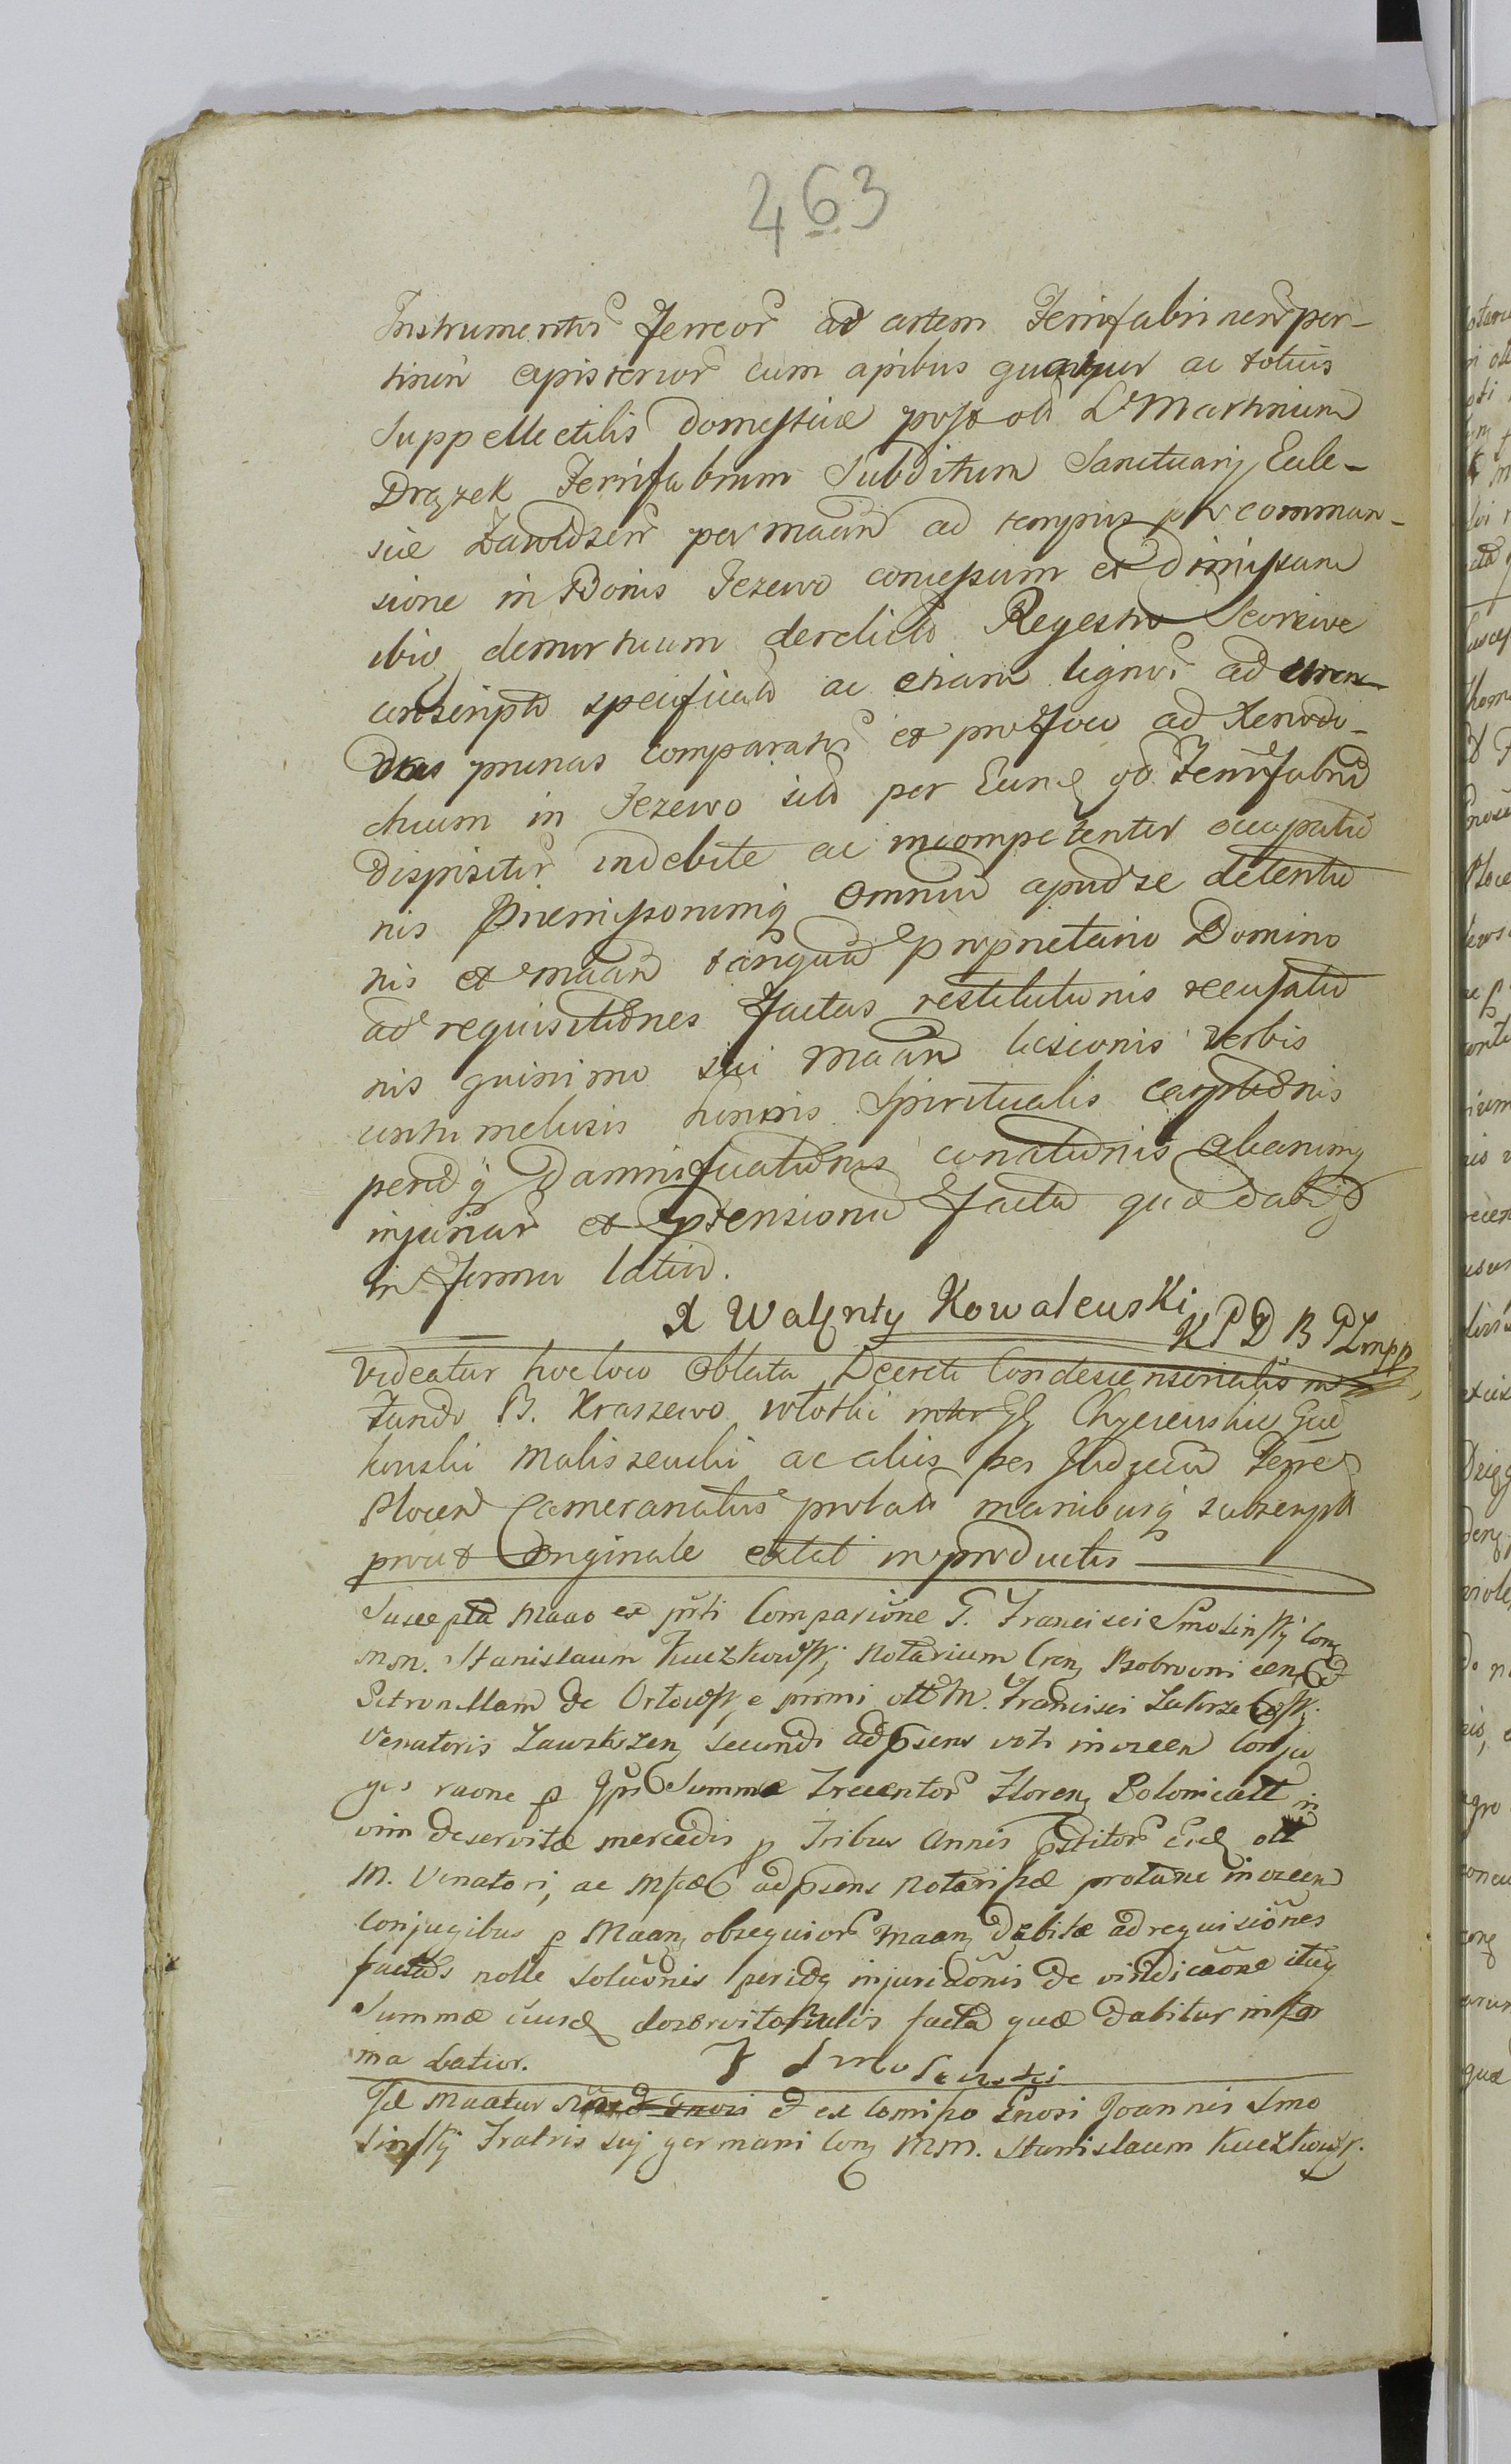 463
Instrumentor ferreor ad artem Ferrifabrinens per-
tinen apisterior cum apibus quatuor ac totius
Suppellectilis domesticæ post olim L Martinum
Drązek Ferrifabrum Subditum Sanctuarij Eccle-
siæ Zawidzen per maan ad tempus pro comman-
sione in Bonis Jezewo concessum et dimissum
ibiq demortuum derelicta Regestro Seorsive
conscripto specificata ac etiam lignor ad
prunas comparator et pro foco ad Xenodo-
chium in Jezewo sito per Eund od Ferrifabrum
dispositor indebite ac incompetenter occupatio
nis præmissorumq omnium apud se detentio
nis et maan tanquam proprietario Domino
ad requisitiones factas restitutionis recusatio
nis quinimo sui maan læsionis verbis
contumeliosis honoris Spiritualis carptionis
perid q damnificationis conationis aliarumq
injuriar et prætensionum facta quæ dabitr
in forma latior.
X Walęnty Kowalewski
K P D B P Z mpp
Videatur hoc loco Oblata Decreti Condescensorialis in
Fundo B. Kraszewo Włostki inter
Malisewski ac alios per Judicium Terre
Plocen Cameranator prolati manibusq subscripti
prout Originale extat in productis
Suscepta Maao ex prsti Comparitione G. Francisci Smolinskij Con
Mm. Stanislaum Kuczkowsk Notarium Cren Bobrovnicen et
Petronillam de Orłowsk e primi olt M. Francisci Zakrzewsk
Venatoris Zawskszen secundi ad præsens voti invicem Conju
ges raone p Ipsos Summæ Trecentor Floren Polonicalt in
vim deservitæ mercedis p Tribus Annis Eid olt
M. Venatori, ac Msæ ad præsens Notarissæ protunc invicem
Conjugibus p Maan obsequior Maan debitæ ad requisiões
factas nolle Soluõnis perid q injuriaõnis de vindicaõne itaq
Summæ ejusd deservitorialis facta quæ dabitur in for
ma Latior.
F Smolenski
Ide Maatur et ex Comisso Gnosi Joannis Smo
linskij Fratris sui germani Con Mm. Stanislaum Kuczkowsk.